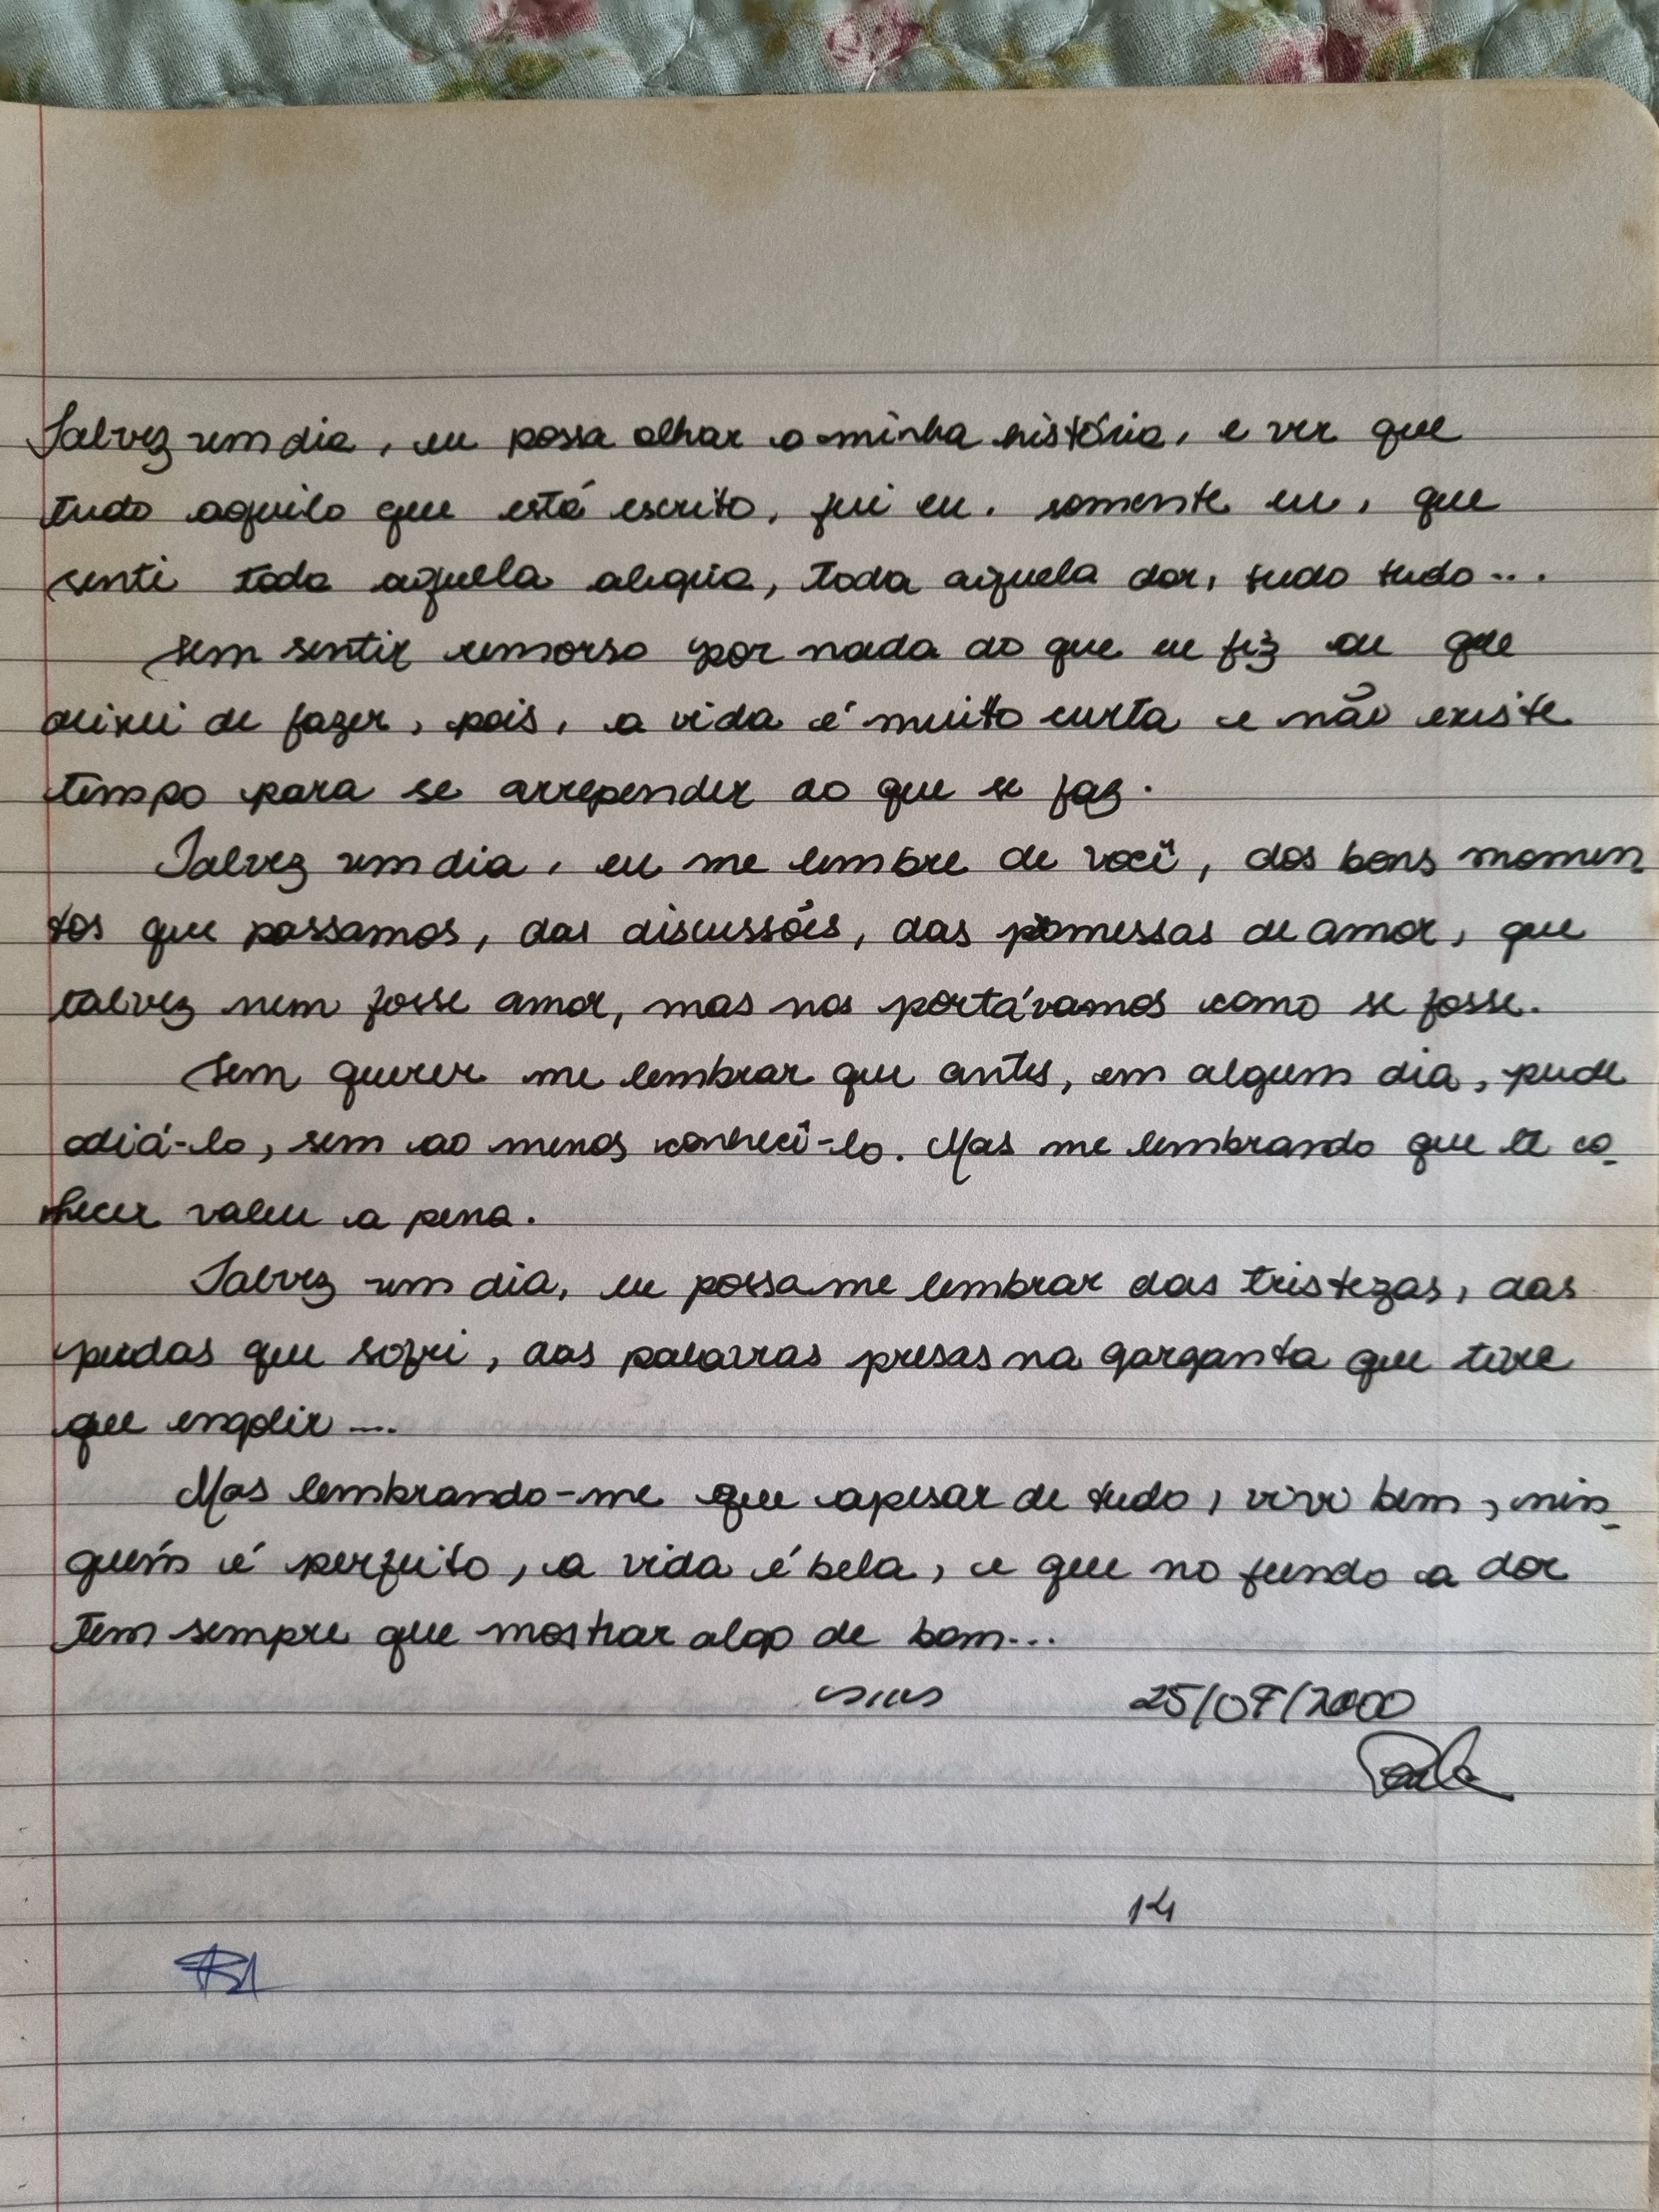 Talvez um dia, eu possa olhar a minha história, e ver que
tudo aquilo que está escrito, fui eu. somente eu, que
senti toda aquela alegria, toda aquela dor, tudo tudo...
sem sentir remorso por nada do que eu fiz ou que
deixei de fazer, pois, a vida é muito curta e não existe
tempo para se arrepender do que se faz.
Talvez um dia, eu me lembre de você, dos bons momen
tos que passamos, das discussões, das promessas de amor, que
talvez nem fosse amor, mas nos portávamos como se fosse.
Sem querer me lembrar que antes, em algum dia, pude
odiá-lo, sem ao menos conhecê-lo. Mas me lembrando que te co-
nhecer valeu a pena.
Talvez um dia, eu possa me lembrar das tristezas, das
perdas que sofri, das palavras presas na garganta que tive
que engolir....
Mas lembrando-me que apesar de tudo, vivi bem, nin-
guém é perfeito, a vida é bela, e que no fundo a dor
tem sempre que mostrar algo de bom...
25/07/2000
Paula
14